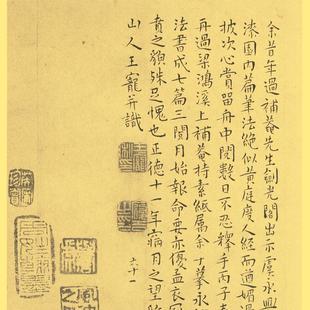 余昔年過補菴先生劍光閣出示虞永興
漆園内篇筆法絶似黄庭度人經而遒媚過
披次心賞留舟中閱數日不忍釋手丙子
再過梁鴻溪上補菴持素紙属余寸摹永
法書成七篇三閱月始報命要亦優孟衣冠
賁之䫉殊足愧也正德十一年病月之望
山人王寵并識
六十一